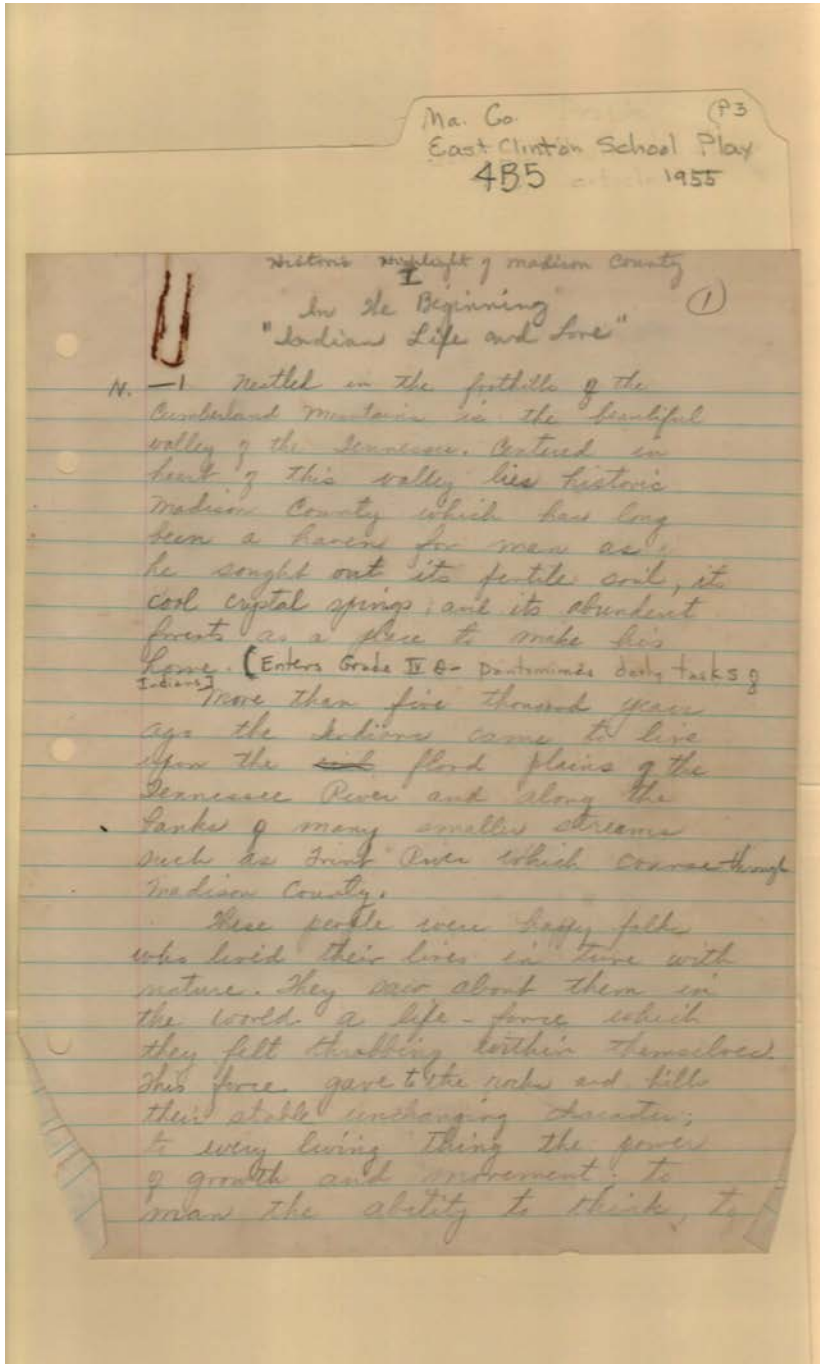 Ma. Co. P3
East Clinton School Play
4B5 1955
Historic Highlight of Madison County
I
In the Beginning (1)
"Indian Life and Love"
N. — 1 Nestled in the foothills of the
Cumberland Mountains is the beautiful
valley of the Tennessee. Centered in
heart of this valley lies historic
Madison County which has long
been a haven for man as
he sought out its fertile soil, its
cool crystal springs, and its abundent
forests as a place to make his
home. (Enters Grade IV - Pantomimes daily tasks of
Indians]
More than five thousand years
ago the Indians came to live
upon the flood plains of the
Tennessee River and along the
banks of many smaller streams
such as Frint River which course through
Madison County.
These people were happy folks
who lived their lives in tune with
nature. They saw about them in
the world a life-force which
they felt throbbing within themselves.
This force gave to the rocks and hills
their stable unchanging character;
to every living thing the power
of growth and movement; to
man the ability to think, to